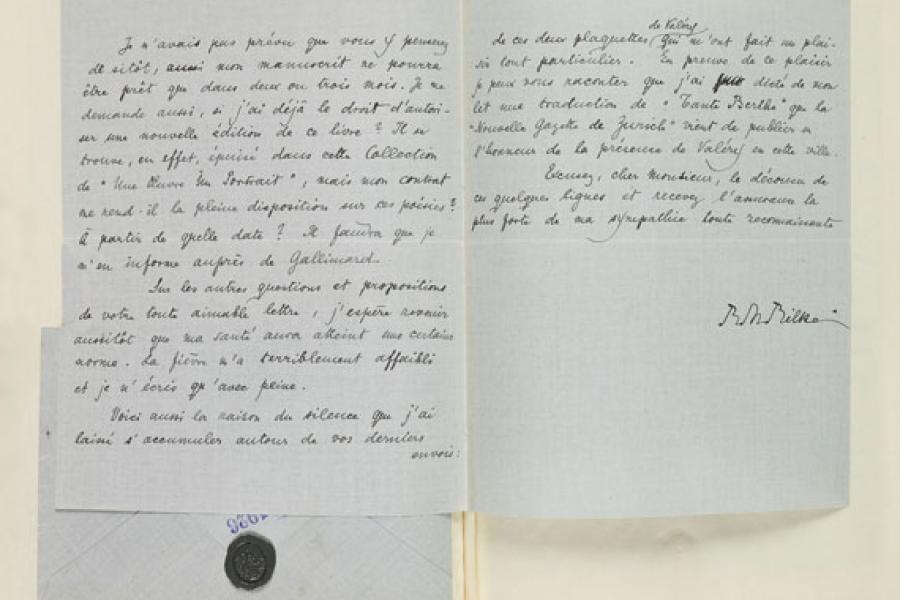 Je n'avais pas prévu que vous y penserez
de sitôt, aussi mon manuscrit ne pourra
être prêt que dans deux ou trois mois. Je me
demande aussi, si j'ai déjà le droit d'autori-
ser une nouvelle édition de ce livre ? Il se
trouve, en effet, épuisé dans cette Collection
de "Une Œuvre Un Portrait", mais mon contrat
me rend-il la pleine disposition sur ces poésies ?
À partir de quelle date ? Il faudra que je
m'en informe auprès de Gallimard.
Sur les autres questions et propositions
de votre toute aimable lettre, j'espère revenir
aussitôt que ma santé aura atteint une certaine
norme. La fièvre m'a terriblement affaibli
et je n'écris qu'avec peine.
Voici aussi la raison du silence que j'ai
laissé s'accumuler autour de vos derniers
envois:
1926
de Valéry
de ces deux plaquettes qui m'ont fait un plai-
sir tout particulier. En preuve de ce plaisir
je peux vous raconter que j'ai dicté de mon
lit une traduction de "Tante Berthe" que la
"Nouvelle Gazette de Zurich" vient de publier en
l'honneur de la présence de Valéry en cette ville.
Excusez, cher monsieur, le décousu de
ces quelques lignes et recevez l'assurance la
plus forte de ma sympathie toute reconnaissante
R M Rilke